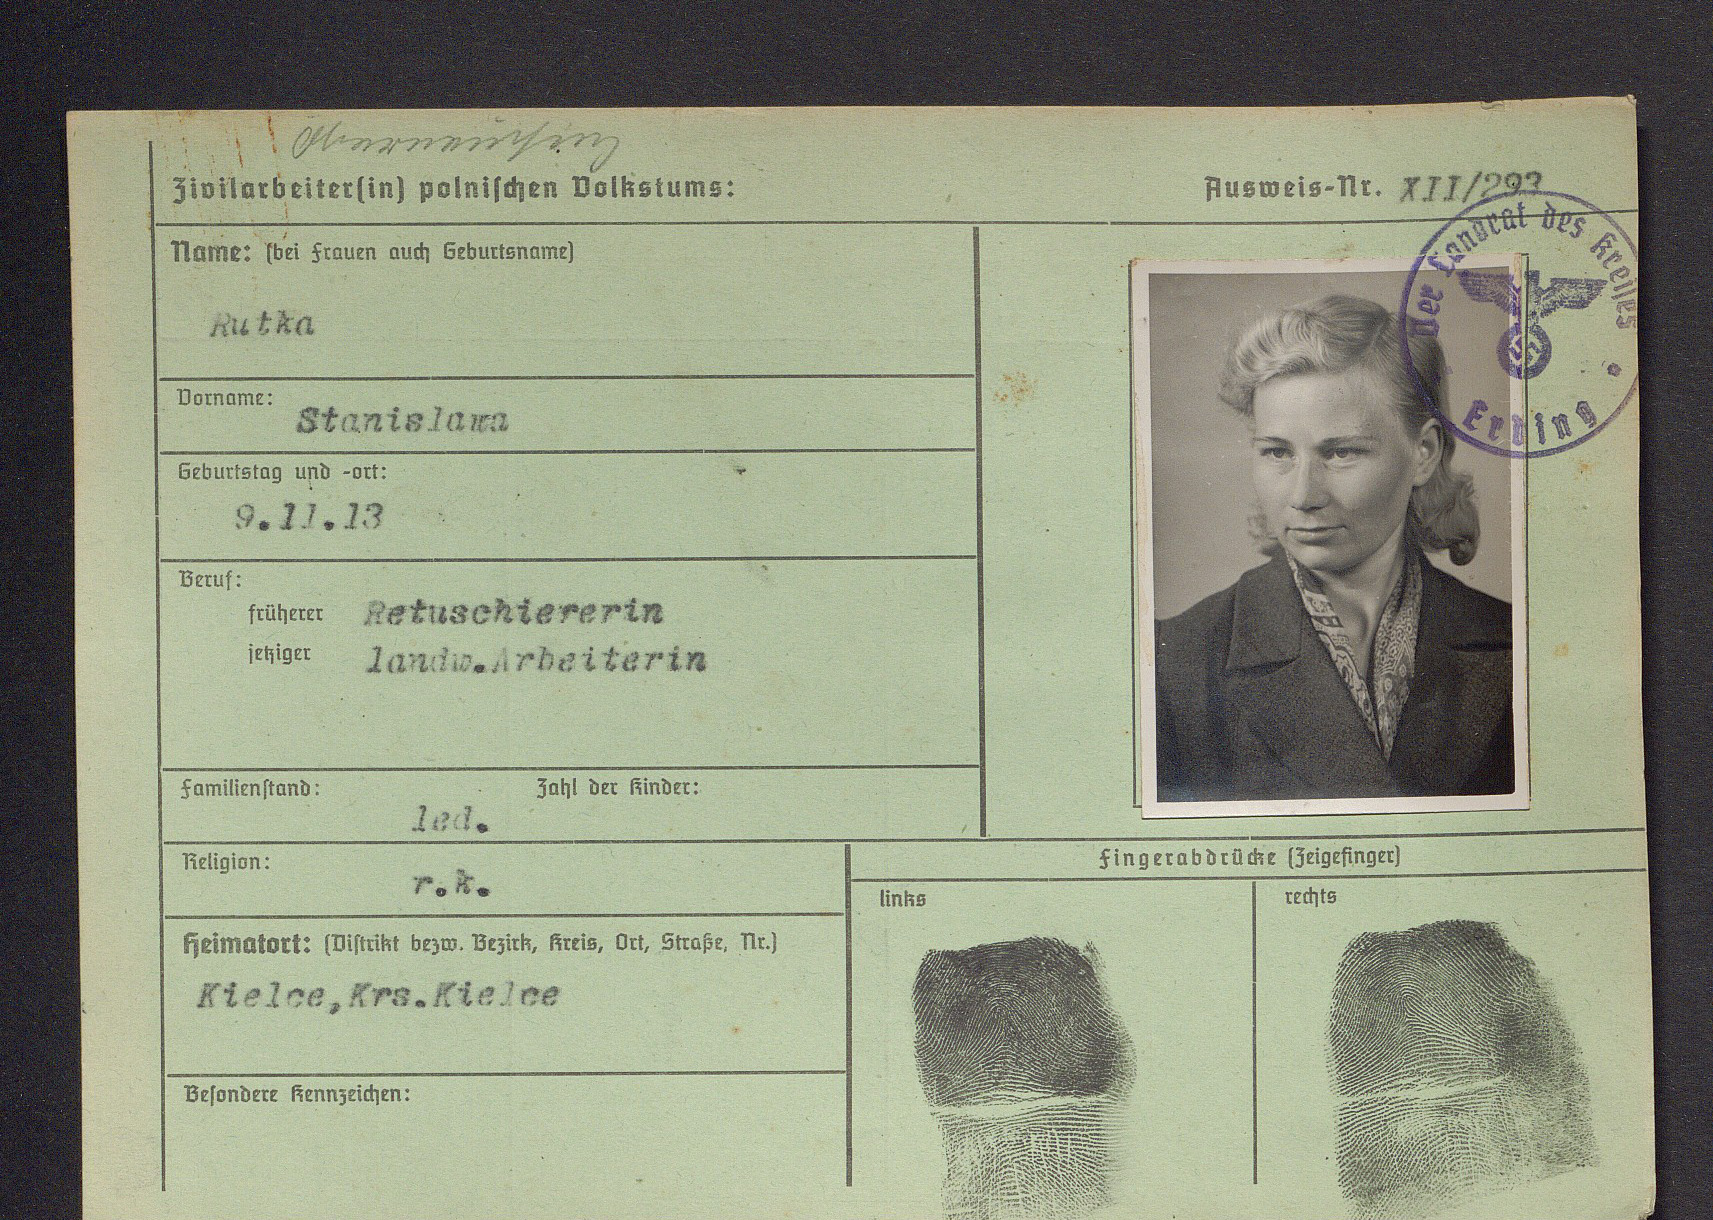 Zivilarbeiter(in) polnischen Volkstums:
Ausweis-Nr. XII/293
Name: (bei Frauen auch Geburtsname)
Rutka
Vorname:
Stanislawa
Geburtstag und -ort:
9.11.13
Beruf:
früherer Retuschiererin
jetziger landw.Arbeiterin
Familienstand: Zahl der Kinder:
led.
Religion:
r.k.
Heimatort: (Distrikt bezw. Bezirk, Kreis, Ort, Straße, Nr.)
Kielce,Krs.Kielce
Besondere Kennzeichen:
Der Landrat des Kreises
Erding
Fingerabdrücke (Zeigefinger)
links
rechts